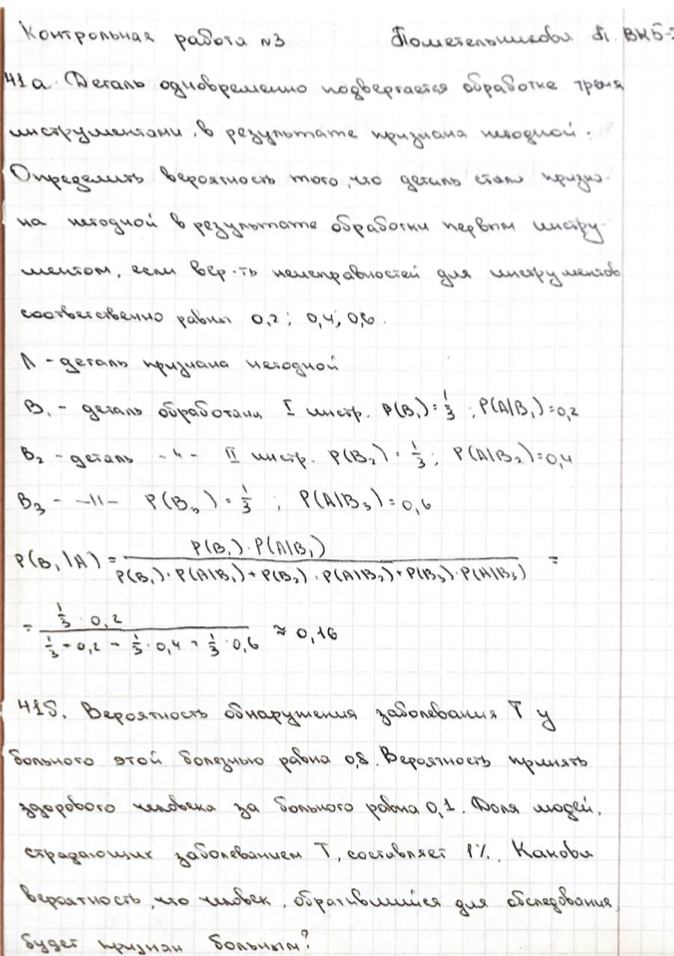 Контрольная работа №3 Пометельникова П. ВКБ-
41а. Деталь одновременно подвергается обработке тремя
инструментами, в результате признана негодной.
Определить вероятность того, что деталь стала призна-
на негодной в результате обработки первым инстру-
ментом, если вер-ть неисправностей для инструментов
соответственно равны 0,2; 0,4; 0,6.
A - деталь признана негодной
B₁ - деталь обработана I инстр. P(B₁) = 1/3 ; P(A|B₁) = 0,2
B₂ - деталь -"- II инстр. P(B₂) = 1/3 ; P(A|B₂) = 0,4
B₃ - -||- P(B₃) = 1/3 ; P(A|B₃) = 0,6
P(B₁|A) = P(B₁) · P(A|B₁) / P(B₁) · P(A|B₁) + P(B₂) · P(A|B₂) + P(B₃) · P(A|B₃) =
= 1/3 · 0,2 / 1/3 · 0,2 + 1/3 · 0,4 + 1/3 · 0,6 ≈ 0,16
41б. Вероятность обнаружения заболевания Т у
больного этой болезнью равна 0,8. Вероятность принять
здорового человека за больного равна 0,1. Доля людей,
страдающих заболеванием Т, составляет 1%. Какова
вероятность, что человек, обратившийся для обследования,
будет признан больным?